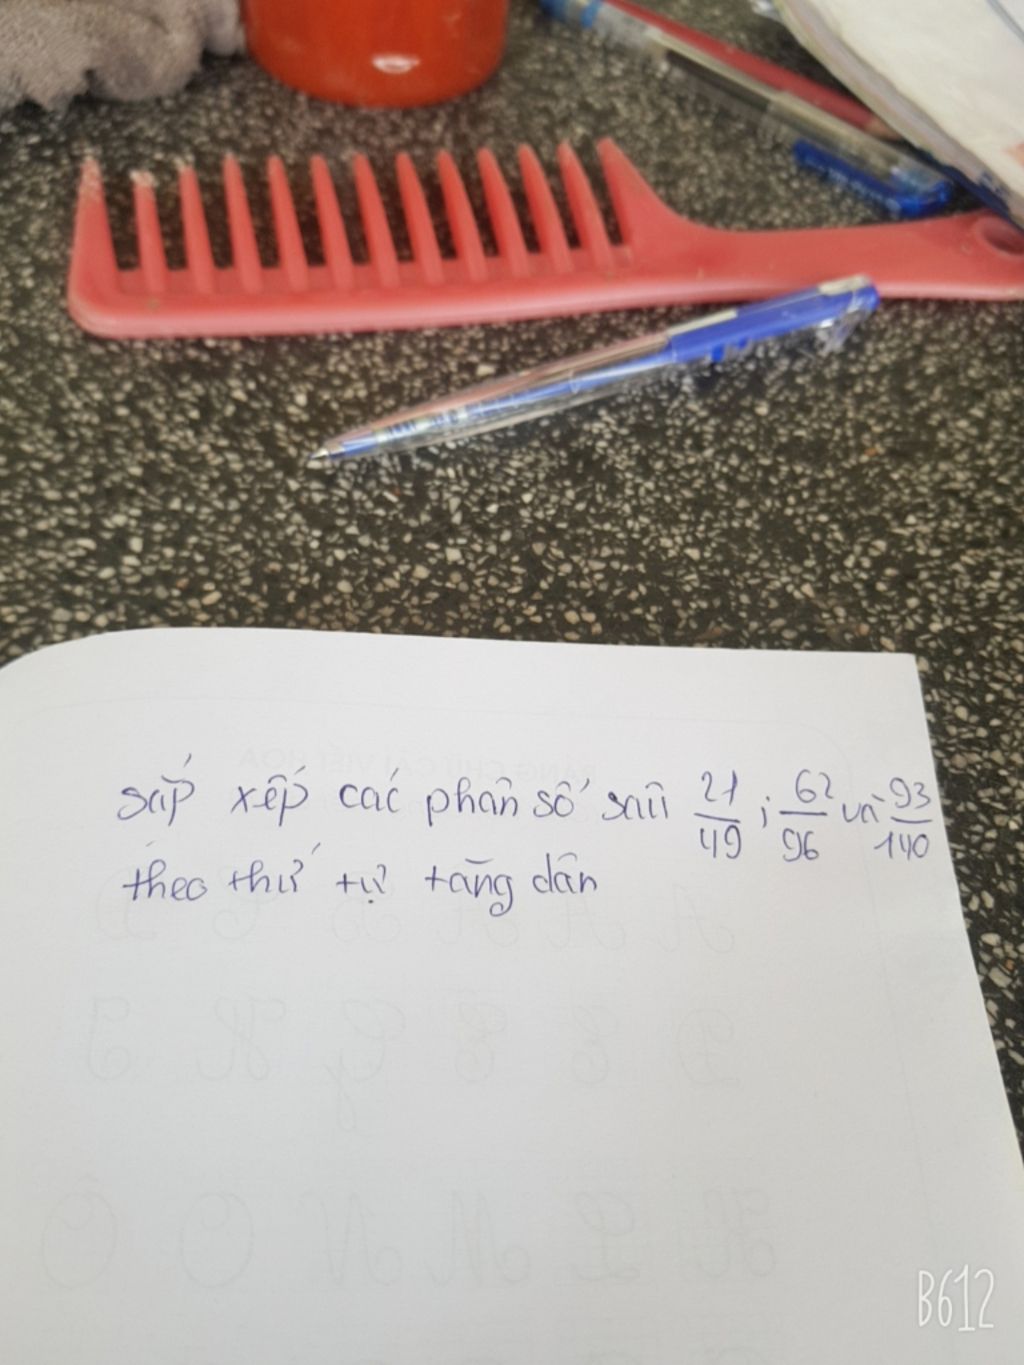 sắp xếp các phân số sau 21/49 ; 62/96 và 93/140
theo thứ tự tăng dần
B612